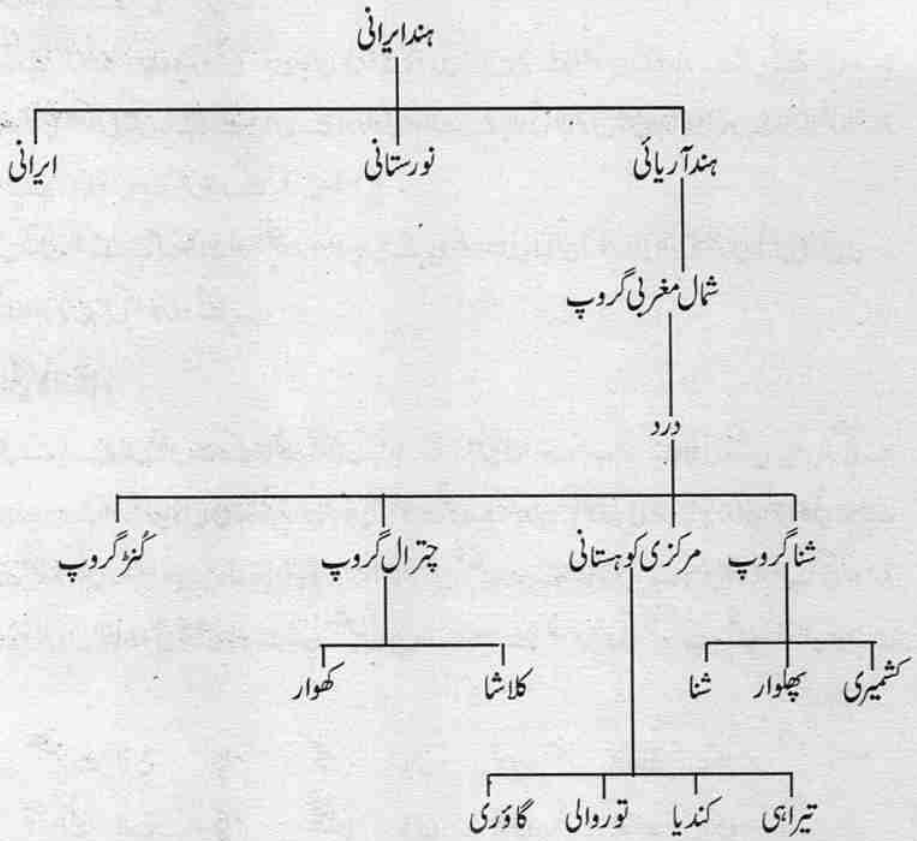 ہندایرانی
ہندآریائی نورستانی ایرانی
شمال مغربی گروپ
درد
شنا گروپ مرکزی کوہستانی چترال گروپ کُنڑ گروپ
کشمیری پھلوار شنا کلاشا کھوار
تیراہی کندیا توروالی گاؤری